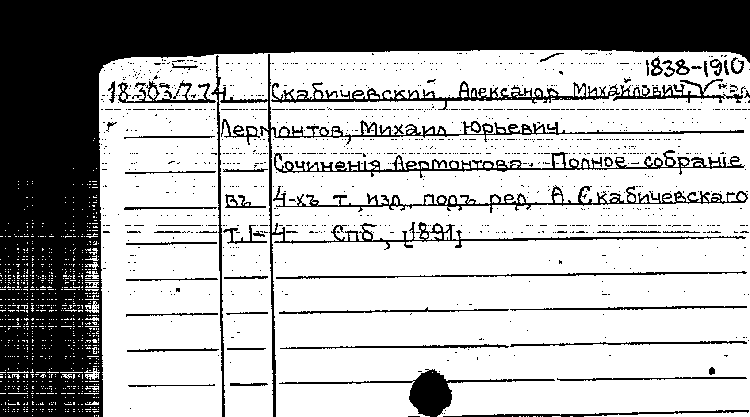 1838-1910
18.303/7.74. Скабичевский, Александр Михайлович, ред.
Лермонтов, Михаил Юрьевич.
Сочиненія Лермонтова. Полное собраніе
въ 4-хъ т., изд. подъ ред. А. Скабичевскаго
Т. 1-4. Спб., [1891]